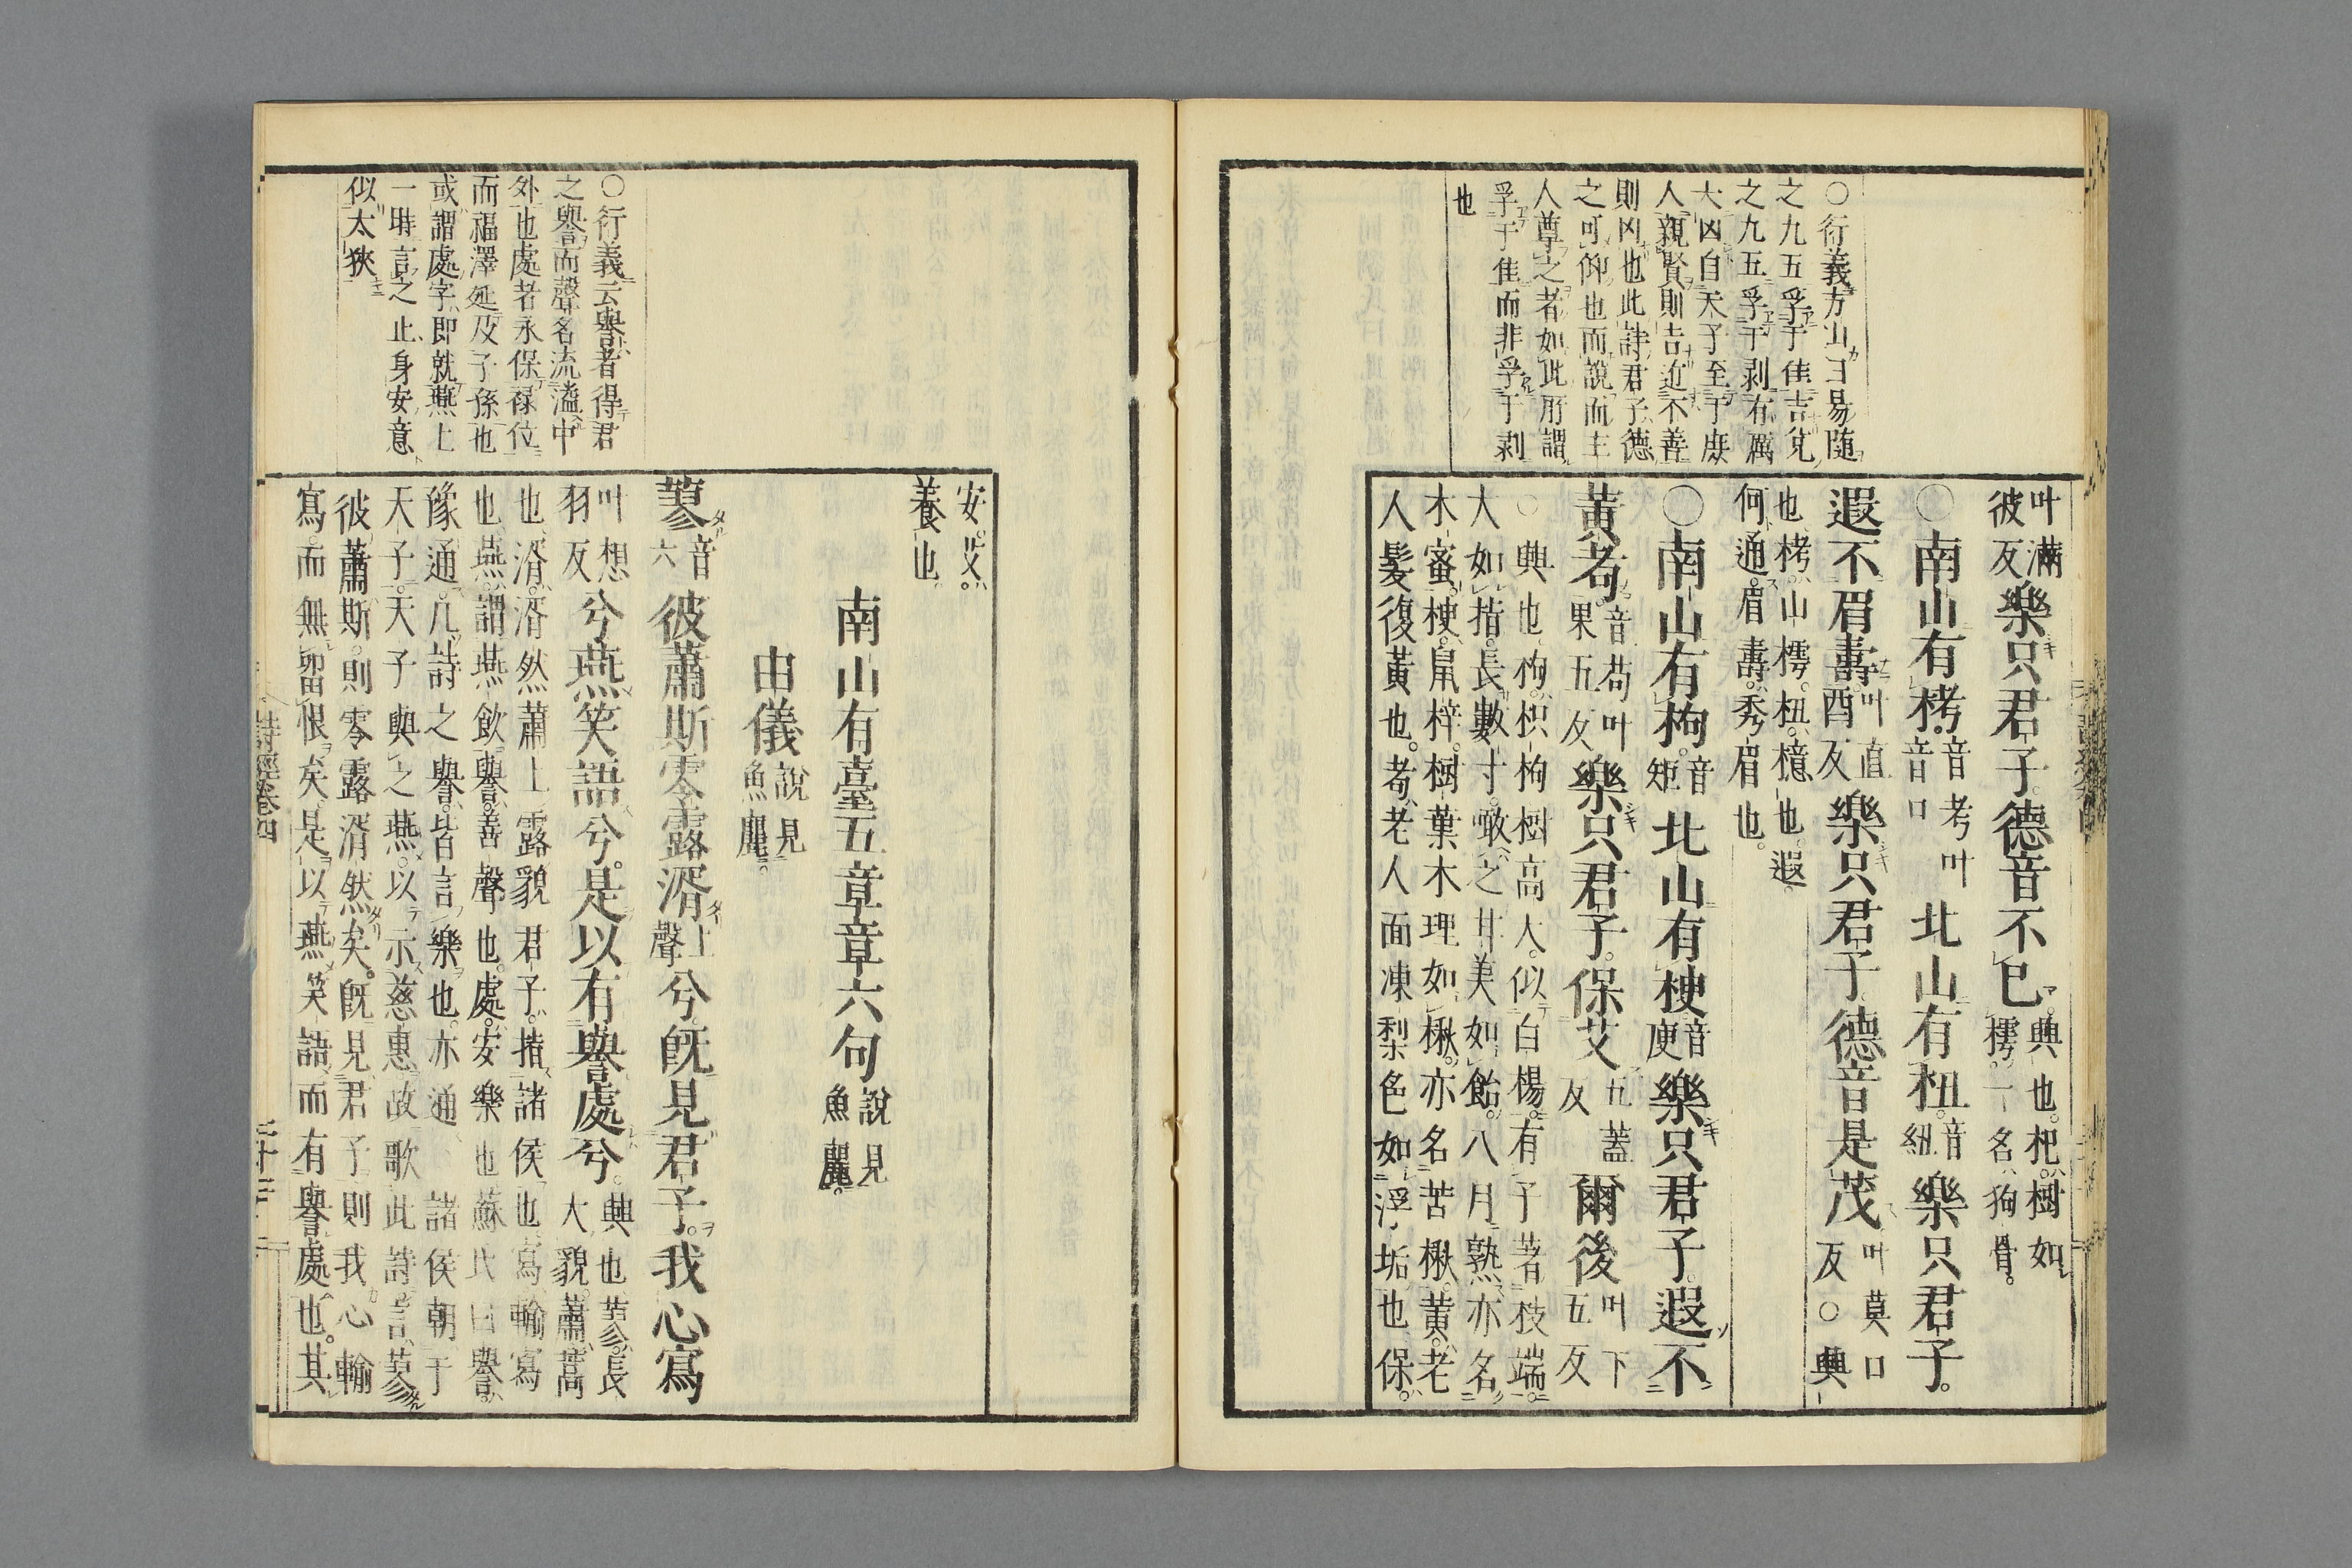 ○衍義方山曰易隨
之九五孚于佳吉兌
之九五孚于剥有厲
大凶自天子至于庶
人親賢則吉近不善
則凶也此詩君子德
之可仰也而說而主
人尊之者如此所謂
孚于佳而非孚于剥
也
叶滿
彼反
樂只君子德音不已
興也杞樹如
樗一名狗骨
○南山有栲
音考叶
音口
北山有杻
音
紐
樂只君子
遐不眉壽
叶直
酉反
樂只君子德音是茂
叶莫口
反○興
也栲山樗杻檍也遐
何通眉壽秀眉也
○南山有枸
音
矩
北山有楰
音
庾
樂只君子遐不
黃耇
音苟叶
果五反
樂只君子保艾
五蓋
反
爾後
叶下
五反
○興也枸枳枸樹高大似白楊有子著枝端
大如指長數寸噉之甘美如飴八月熟亦名
木蜜楰鼠梓樹葉木理如楸亦名苦楸黃老
人髮復黃也耇老人面凍梨色如浮垢也保
安艾
養也
南山有臺五章章六句
說見
魚麗
由儀
說見
魚麗
○衍義云譽者得君
之譽而聲名流溢中
外也處者永保祿位
而福澤延及子孫也
或謂處字即就燕上
一時言之止身安意
似太狹
蓼
音
六
彼蕭斯零露湑
上
聲
兮旣見君子我心寫
叶想
羽反
兮燕笑語兮是以有譽處兮
興也蓼長
大貌蕭蒿
也湑湑然蕭上露貌君子指諸侯也寫輸寫
也燕謂燕飲譽善聲也處安樂也蘇氏曰譽
豫通凡詩之譽皆言樂也亦通諸侯朝于
天子天子與之燕以示慈惠故歌此詩言蓼
彼蕭斯則零露湑然矣旣見君子則我心輸
寫而無留恨矣是以燕笑語而有譽處也其
詩經卷四
二十三